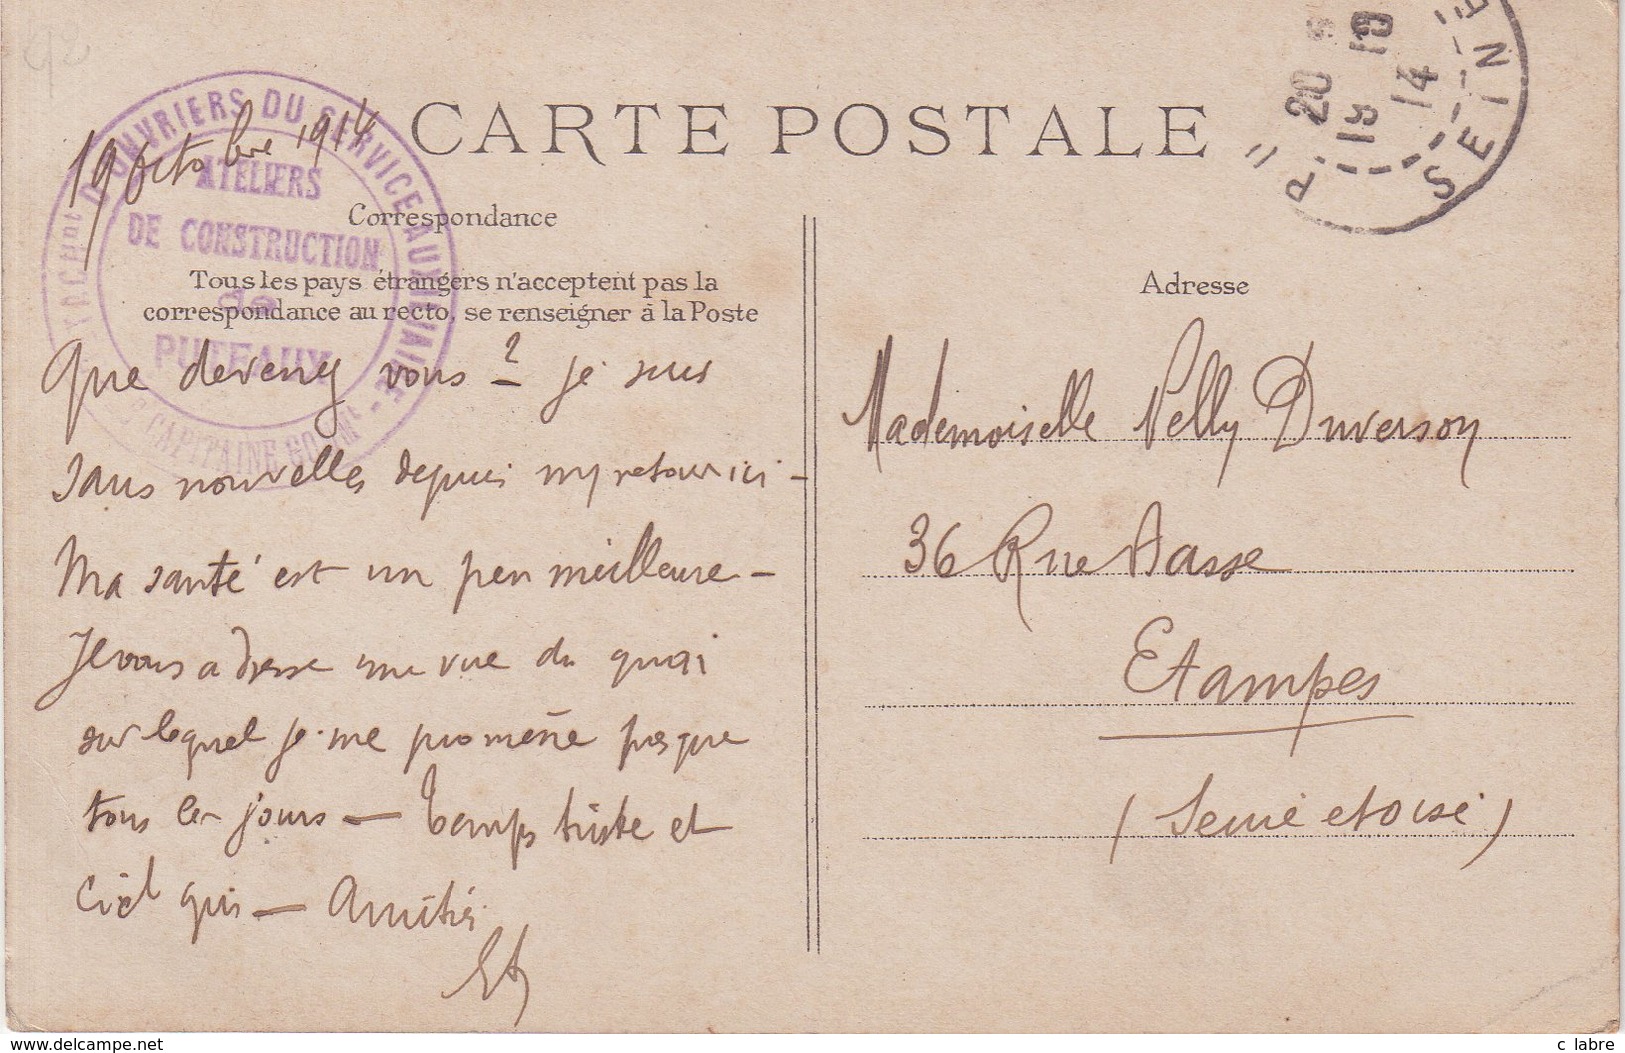 92
CARTE POSTALE
D'OUVRIERS DU SERVICE AUXILIAIRE -
ATELIERS
DE CONSTRUCTION
de
PUTEAUX
CAPITAINE
19 octobre 1914
Correspondance
Tous les pays étrangers n'acceptent pas la
correspondance au recto, se renseigner à la Poste
Que devenez vous ? je suis
sans nouvelles depuis my retour ici -
Ma santé est un peu meilleure -
Je vous adresse une vue du quai
sur lequel je me promène presque
tous les jours — Temps triste et
Ciel gris — Amitiés
P
20
19 10
14
SEINE
Adresse
Mademoiselle Nelly Duverson
36 Rue Basse
Etampes
(Seine et oise)
www.delcampe.net
c labre